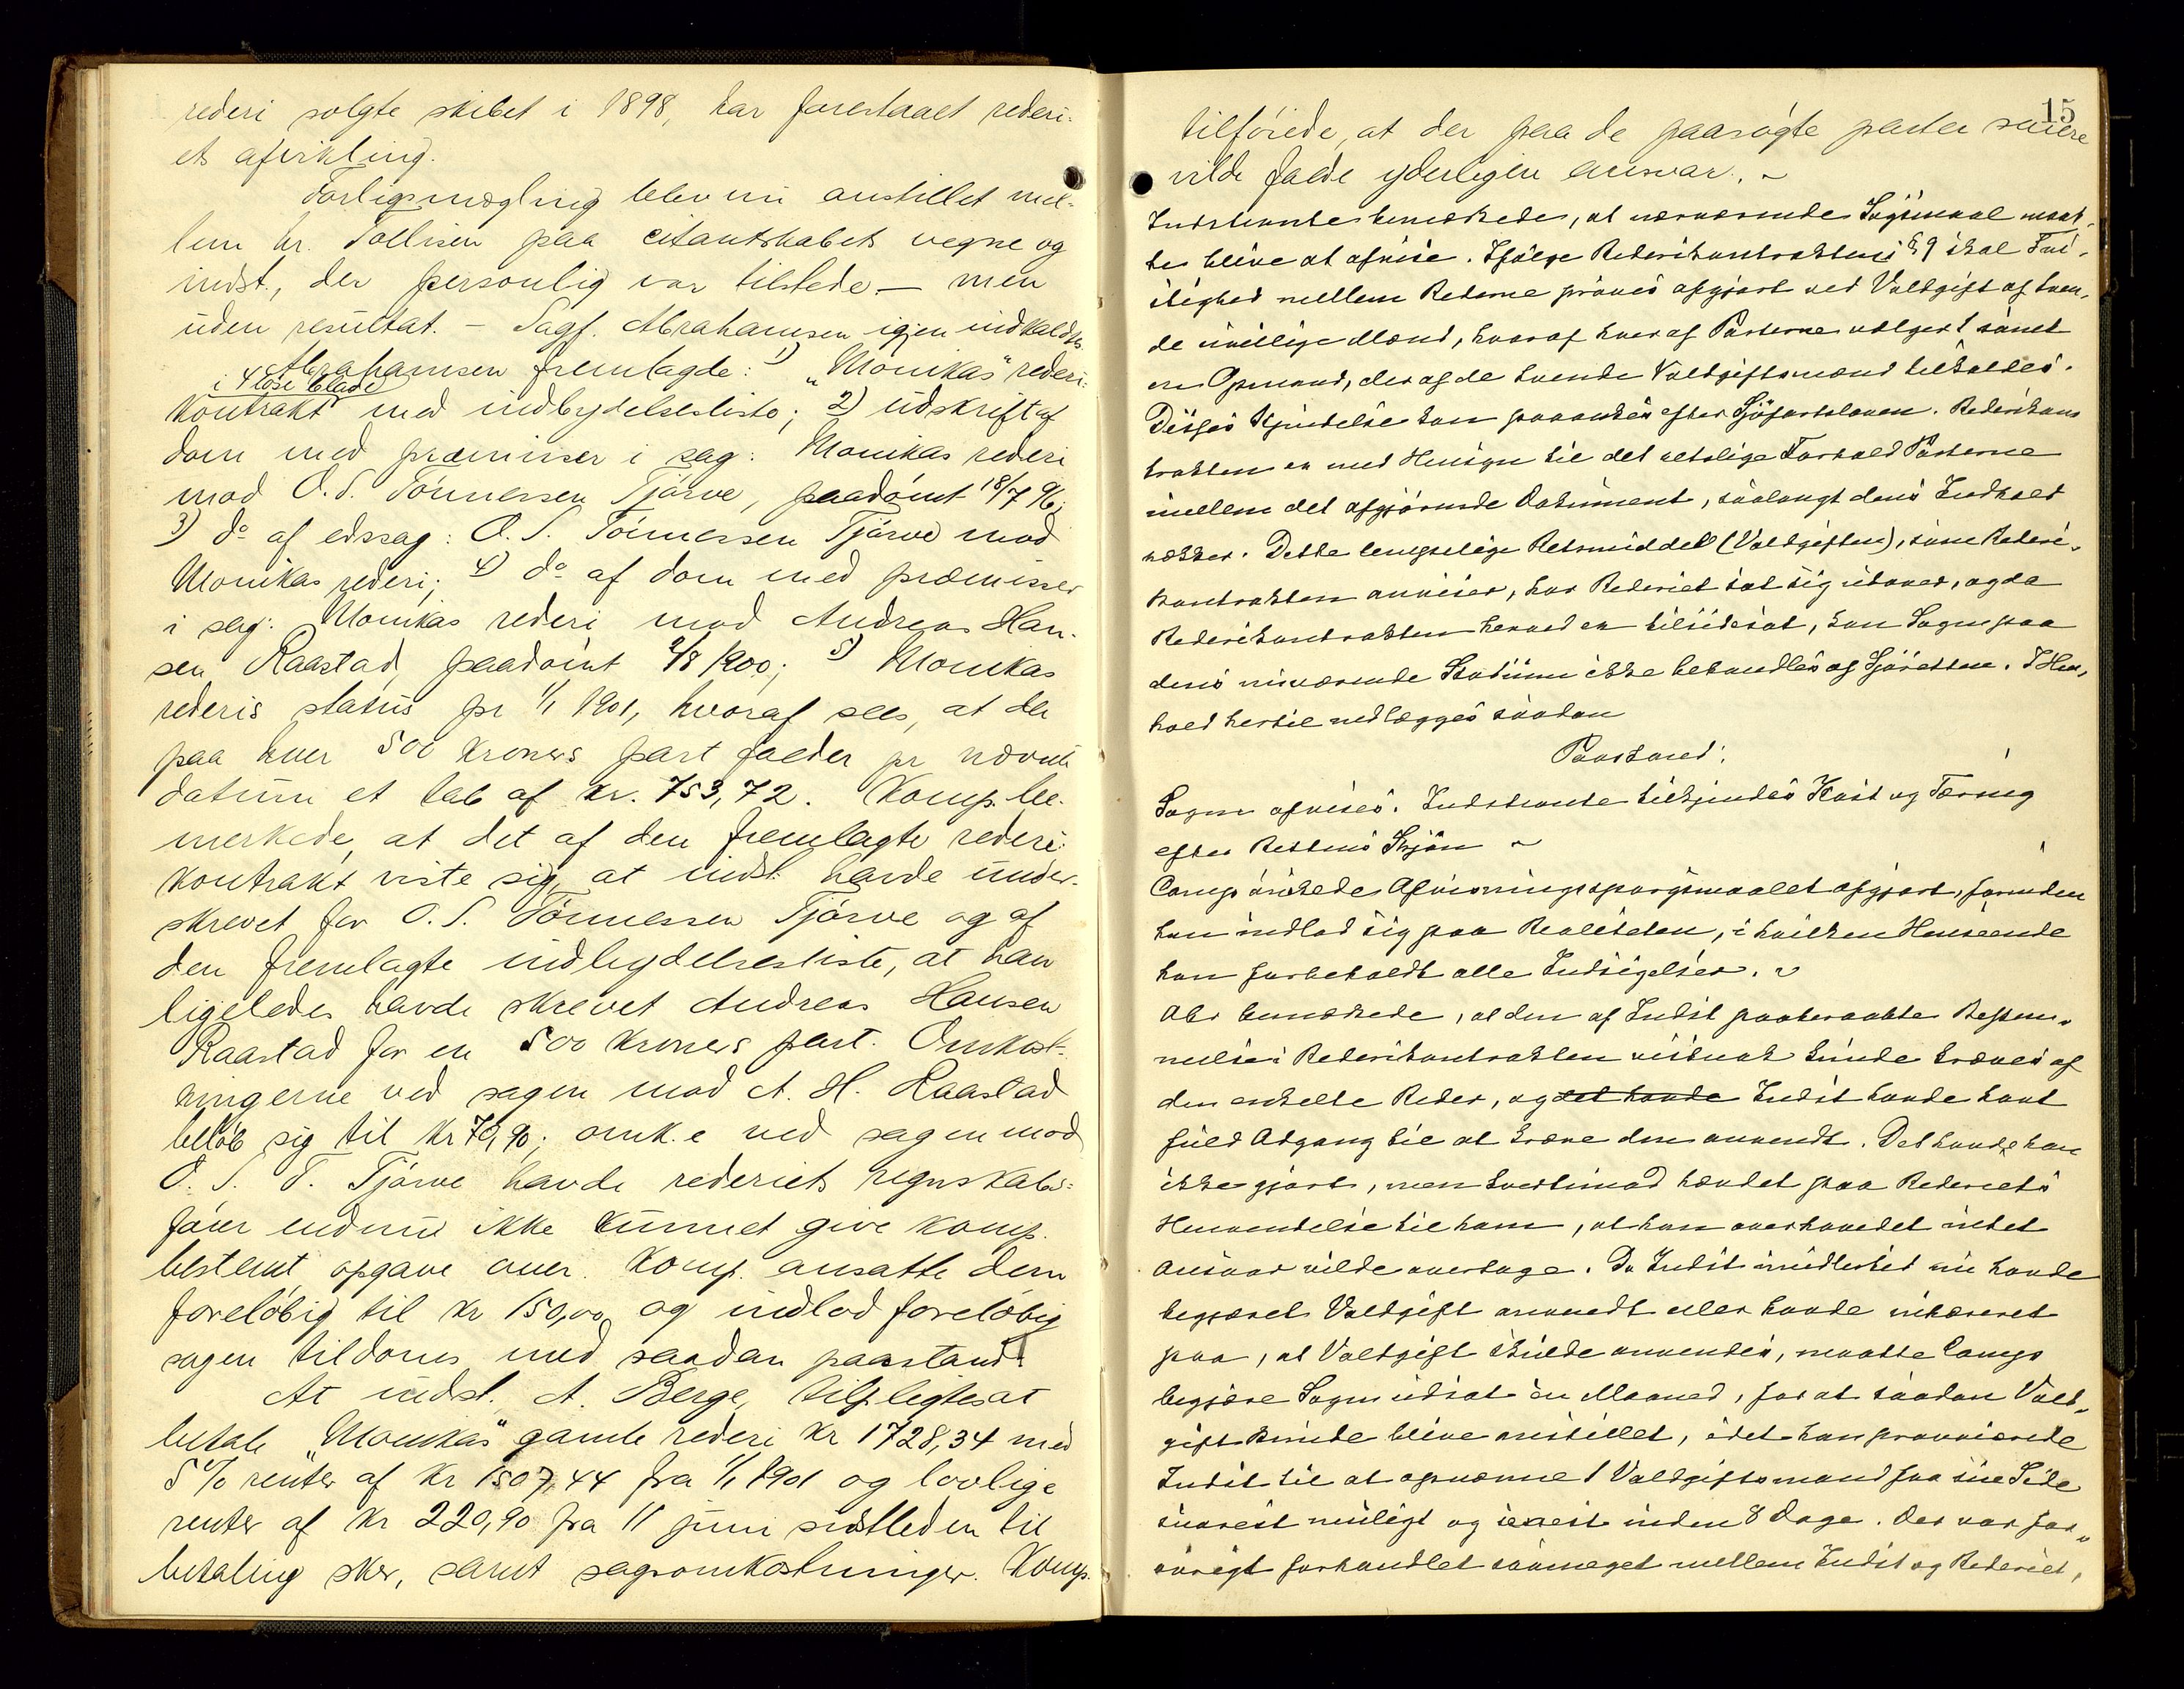 rederi solgte skibet i 1898, har forestaaet rederi-
ets afvikling.
Forligsmægling blev nu anstillet mel-
lem hr. Tollisen paa citantskabets vegne og
indst., der personlig var tilstede – men
uden resultat. – Sagf. Abrahamsen igjen indkaldtes.
Abrahamsen fremlagde: 1) "Monikas" rederi-
i 4 løse blade
kontrakt med indbydelsesliste; 2) udskrift af
dom med præmisser i sag: Monikas rederi
mod O. S. Tönnessen Tjörve, paadömt 18/7 96;
3) do af edssag: O. S. Tönnessen Tjörve mod
Monikas rederi; 4) do af dom med præmisser
i sag: Monikas rederi mod Andreas Han-
sen Raastad, paadömt 2/8 1900; 5) Monikas
rederis status pr 1/1 1901, hvoraf sees, at der
paa hver 500 kroners part falder pr nævnte
datum et tab af kr. 753,72. Komp. be-
merkede, at det af den fremlagte rederi-
kontrakt viste sig, at indst. havde under-
skrevet for O. S. Tönnessen Tjörve og af
den fremlagte indbydelsesliste, at han
ligeledes havde skrevet Andreas Hansen
Raastad for en 500 kroners part. Omkost-
ningerne ved sagen mod A. H. Raastad
beløb sig til kr 70,90; omk.e ved sagen mod
O. S. T. Tjörve havde rederiets regnskabs-
förer endnu ikke kunnet give komp.
bestemt opgave over. Komp. ansatte dem
foreløbig til kr 150,00 og indlod foreløbig
sagen tildoms med saadan paastand:
At indst. A. Berge, tilpligtes at
betale "Monikas" gamle rederi kr 1728,34 med
5 % renter af kr 1507,44 fra 1/1 1901 og lovlige
renter af kr 220,90 fra 11 juni sidstleden til
betaling sker, samt sagsomkostninger. Komp.
15
tilföiede, at der paa de paasøgte parter senere
vilde falde yderligere ansvar. ~
Indstevnte bemærkede, at nærværende Søgsmaal maat-
te blive at afvise. Ifølge Rederikontraktens § 9 skal Tvi-
stighed mellem Rederne prøves afgjort ved Voldgift af tven-
de uvillige Mænd, hvoraf hver af Parterne vælger 1 samt
en Opmand, der af de tvende Voldgiftsmænd tilkaldes.
Disses Kjendelse kan paaankes efter Sjöfartsloven. Rederikon-
trakten er med Hensyn til det retslige Forhold Parterne
imellem det afgjörende Dokument, saalangt dens Indhold
rækker. Dette lempelige Retsmiddel (Voldgiften), som Rederi-
kontrakten anviser, har Rederiet sat sig udover, og da
Rederikontrakten herved er tilsidesat, kan Sagen paa
dens nuværende Stadium ikke behandles af Sjöretten. I Hen-
hold hertil nedlægges saadan
Paastand:
Sagen afvises. Indstevnte tilkjendes Kost og Tæring
efter Rettens Skjön ~
Comp önskede Afvisningsspørgsmaalet afgjort, forinden
han indlod sig paa Realiteten, i hvilken Henseende
han forbeholdt alle Indsigelser. ~
Abr bemærkede, at den af Indst paaberaabte Bestem-
melse i Rederikontrakten vistnok kunde kræves af
den enkelte Reder, og det havde Indst havde havt
fuld Adgang til at kræve den anvendt. Det havde han
ikke gjort, men tvertimod hævdet paa Rederiets
Henvendelse til ham, at han overhovedet intet
Ansvar vilde overtage. Da Indst imidlertid nu havde
begjæret Voldgift anvendt eller havde inhæreret
paa, at Voldgift skulde anvendes, maatte Comp
begjære Sagen udsat en Maaned, for at saadan Vold-
gift kunde blive anstillet, idet han provocerede
Indst til at opnævne 1 Voldgiftsmand fra sin Side
snarest muligt og senest inden 8 Dage. Der var for-
övrigt forhandlet saameget mellem Indst og Rederiet,